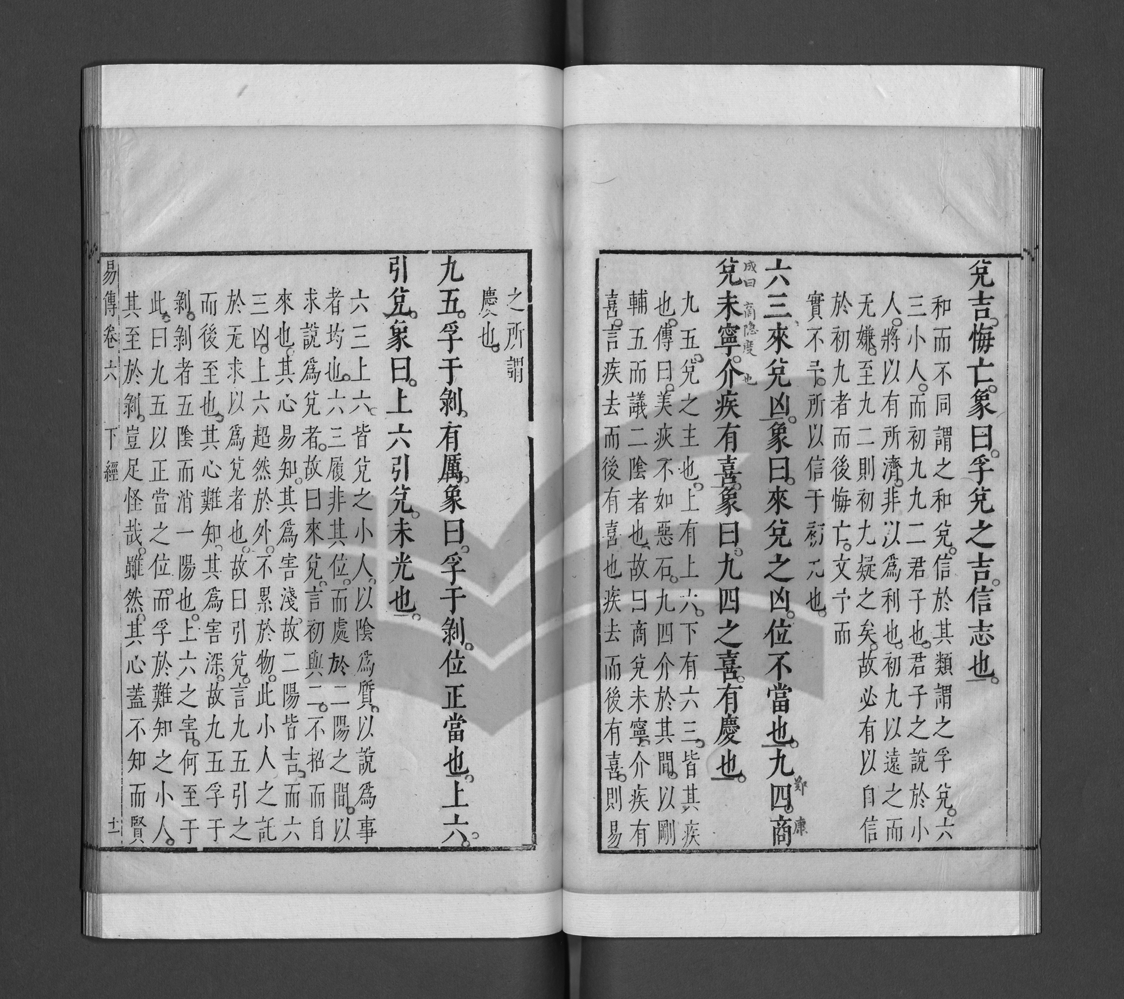 兌吉悔亡象曰孚兌之吉信志也
和而不同謂之和兌信於其類謂之孚兌六
三小人而初九九二君子也君子之說於小
人將以有所濟非以爲利也初九以遠之而
无嫌至九二則初九疑之矣故必有以自信
於初九者而後悔亡文予而
實不予所以信于初九也
六三來兌凶象曰來兌之凶位不當也九四商
鄭康成曰商隱度也
兌未寧介疾有喜象曰九四之喜有慶也
九五兌之主也上有上六下有六三皆其疾
也傳曰美疢不如惡石九四介於其間以剛
輔五而議二陰者也故曰商兌未寧介疾有
喜言疾去而後有喜也疾去而後有喜則易
之所謂
慶也
九五孚于剝有厲象曰孚于剝位正當也上六
引兌象曰上六引兌未光也
六三上六皆兌之小人以陰爲質以說爲事
者均也六三履非其位而處於二陽之間以
求說爲兌者故曰來兌言初與二不招而自
來也其心易知其爲害淺故二陽皆吉而六
三凶上六超然於外不累於物此小人之託
於无求以爲兌者也故曰引兌言九五引之
而後至也其心難知其爲害深故九五孚于
剝剝者五陰而消一陽也上六之害何至于
此曰九五以正當之位而孚於難知之小人
其至於剝豈足怪哉雖然其心蓋不知而賢
易傳卷六 下經 十一